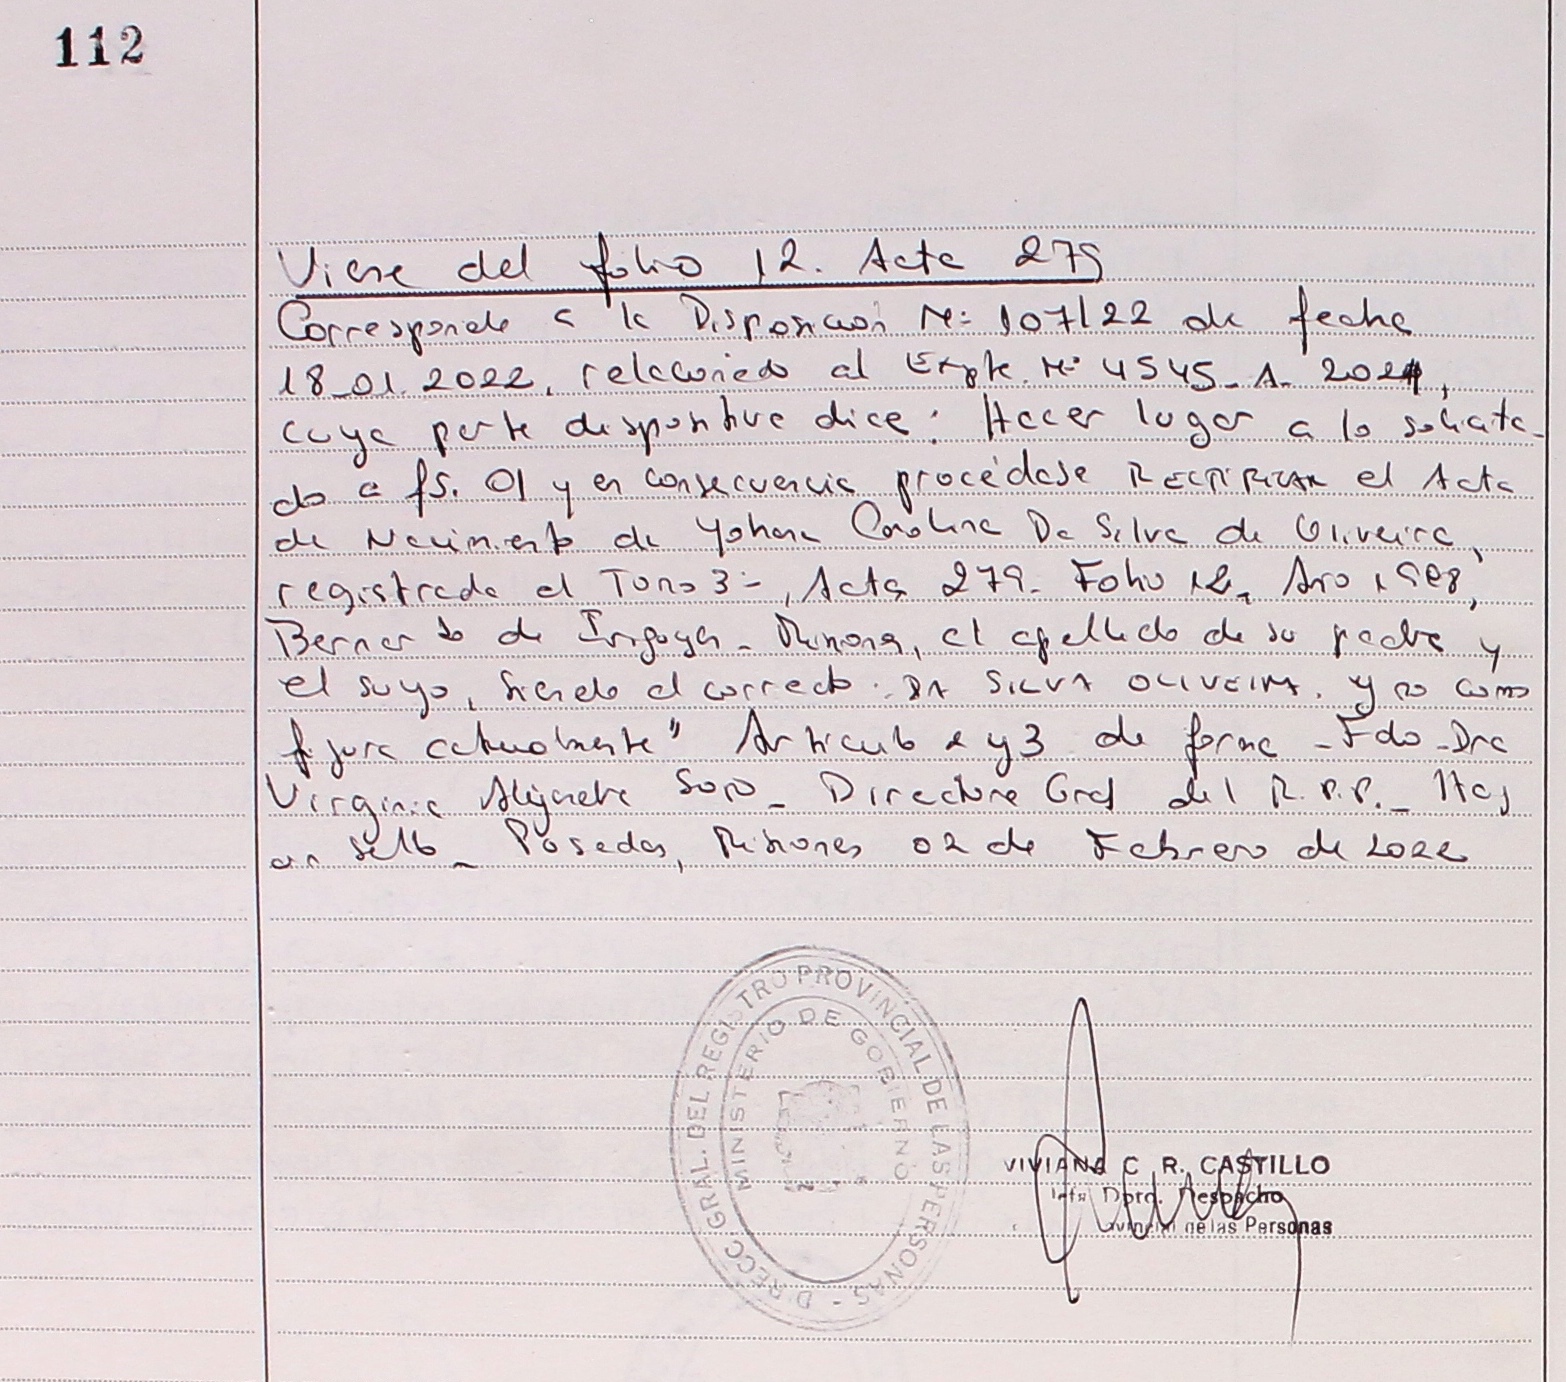 112
Viene del folio 12. Acta 279
Corresponde a la Disposicion Nº 107/22 de fecha
18_01.2022, relacionado al Expte. Nº 4545_A_ 2021,
cuya parte dispositiva dice: Hacer lugar a lo solicita_
do a fs. 01 y en consecuencia procédase RECTIFICAR el Acta
de Nacimiento de Yohana Carolina Da Silva de Oliveira,
registrada al Tomo 3º_, Acta 279_ Folio 12_ Año 1988,
Bernardo de Irigoyen_ Misiones, el apellido de su padre y
el suyo, siendo el correcto: DA SILVA OLIVEIRA. y no como
figura actualmente" Articulo 2 y 3 de forma _Fdo_Dra
Virginia Soro_ Directora Gral del R.P.P._ Hay
un sello_ Posadas, Misiones 02 de Febrero de 2022
DIRECC. GRAL. DEL REGISTRO PROVINCIAL DE LAS PERSONAS -
MINISTERIO DE GOBIERNO
VIVIANA C. R. CASTILLO
Dpto. Despacho
Provincial de las Personas